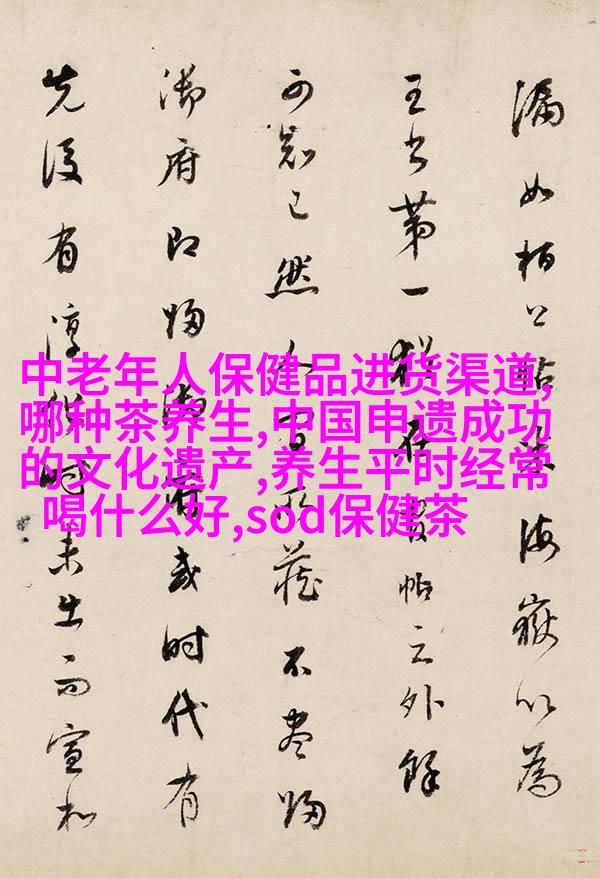 中老年人保健品进货渠道,
哪种茶养生,中国申遗成功
的文化遗产,养生平时经常
喝什么好,sod保健茶
漏如柏公帖海嶽以為
王书第一居帖之外餘
可然不尽归
御府即归或时代有
先後有淳时未出而宣和